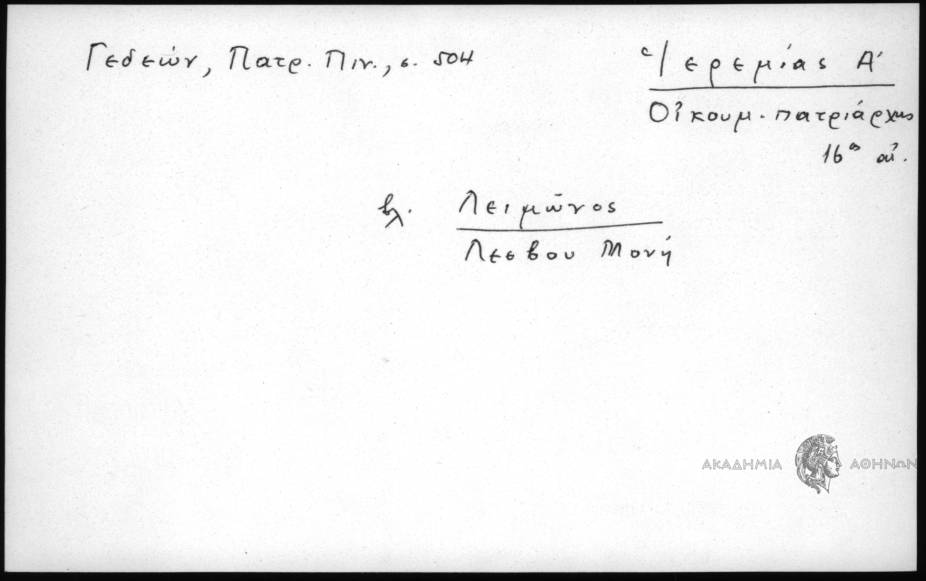 Γεδεών, Πατρ. Πιν., σ. 504
Ἱερεμίας Α΄
Οἰκουμ. πατριάρχης
16ος αἰ.
βλ. Λειμῶνος
Λέσβου Μονή
ΑΚΑΔΗΜΙΑ ΑΘΗΝΩΝ